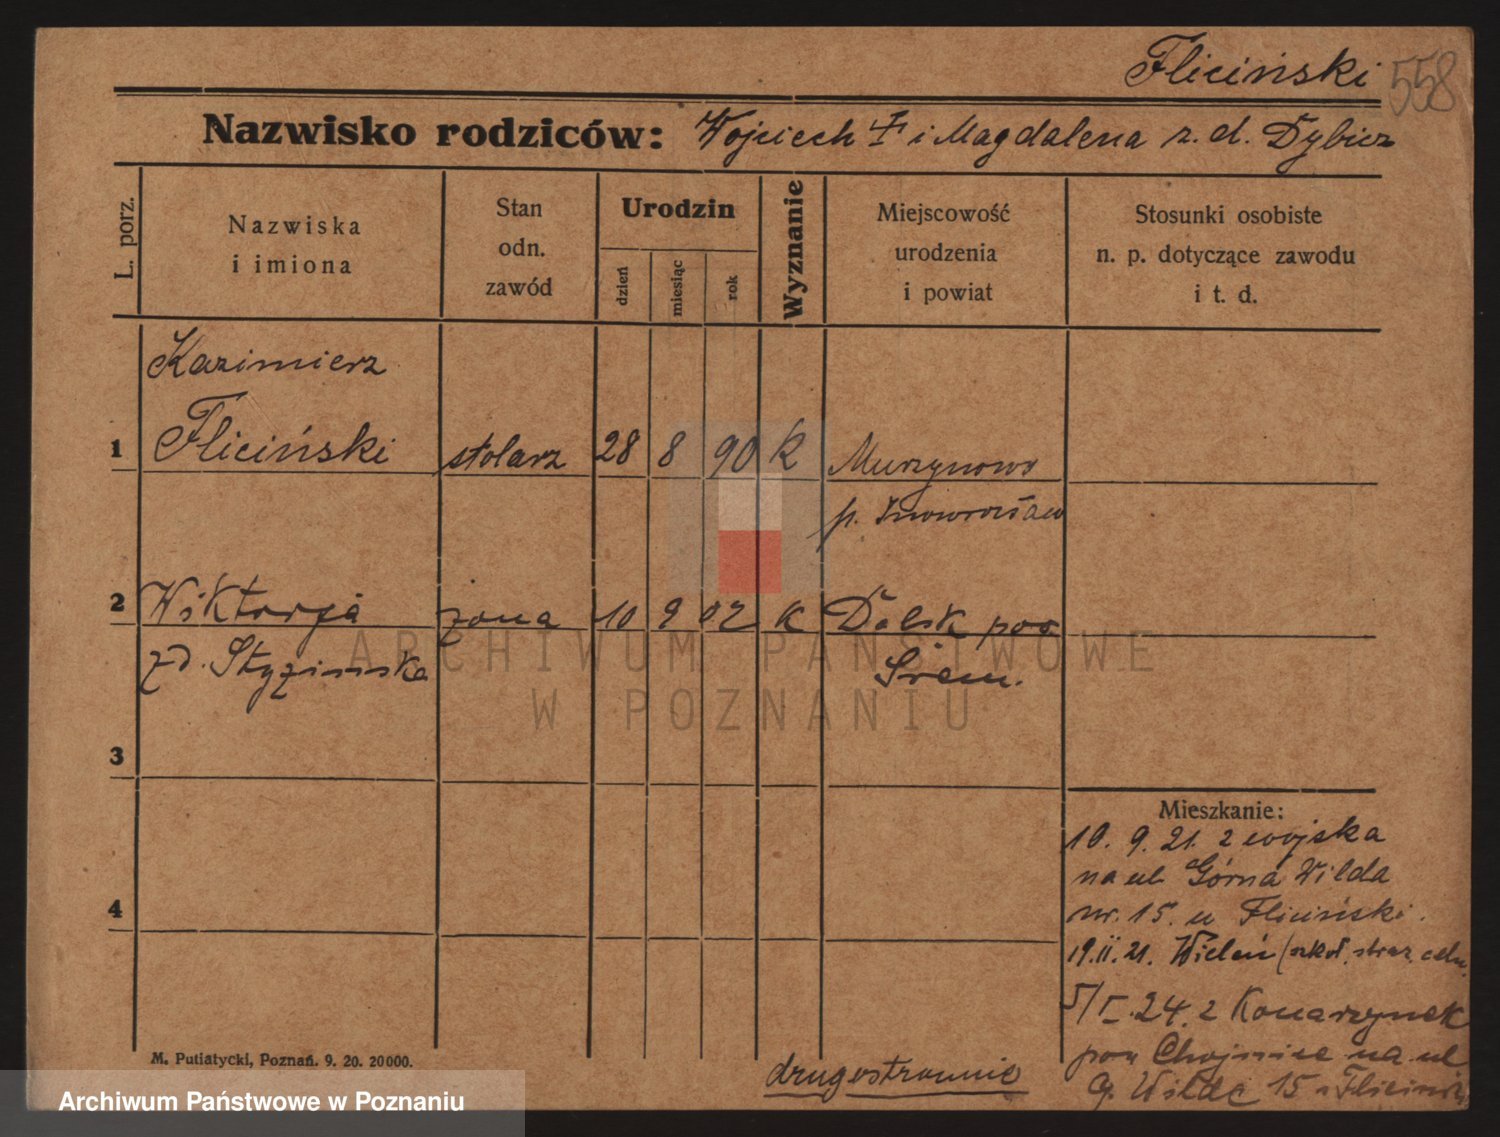 Fliciński 558
Nazwisko rodziców: Wojciech i Magdalena z. d. Dybicz
L. porz.
Nazwiska
i imiona
Stan
odn.
zawód
Urodzin
dzień
miesiąc
rok
Wyznanie
Miejscowość
urodzenia
i powiat
Stosunki osobiste
n. p. dotyczące zawodu
i t. d.
Kazimierz
1 Fliciński stolarz 28 8 90 k Murzynowo
p. Inowrocław
2 Wiktorja żona 10 9 02 k Dolsk pow
zd. Styzinska Śrem.
ARCHIWUM PAŃSTWOWE
W POZNANIU
3
4
Mieszkanie:
10. 9. 21. z wojska
na ul. Górna Wilda
nr. 15. u Fliciński.
19.II.21. Wieleń (szkoł. straż. celn.
5/I. 24. z Konarzynek
pow Chojnice na ul
G. Wilda 15 Fliciński
drugostronnie
M. Putiatycki, Poznań. 9. 20. 20000.
Archiwum Państwowe w Poznaniu